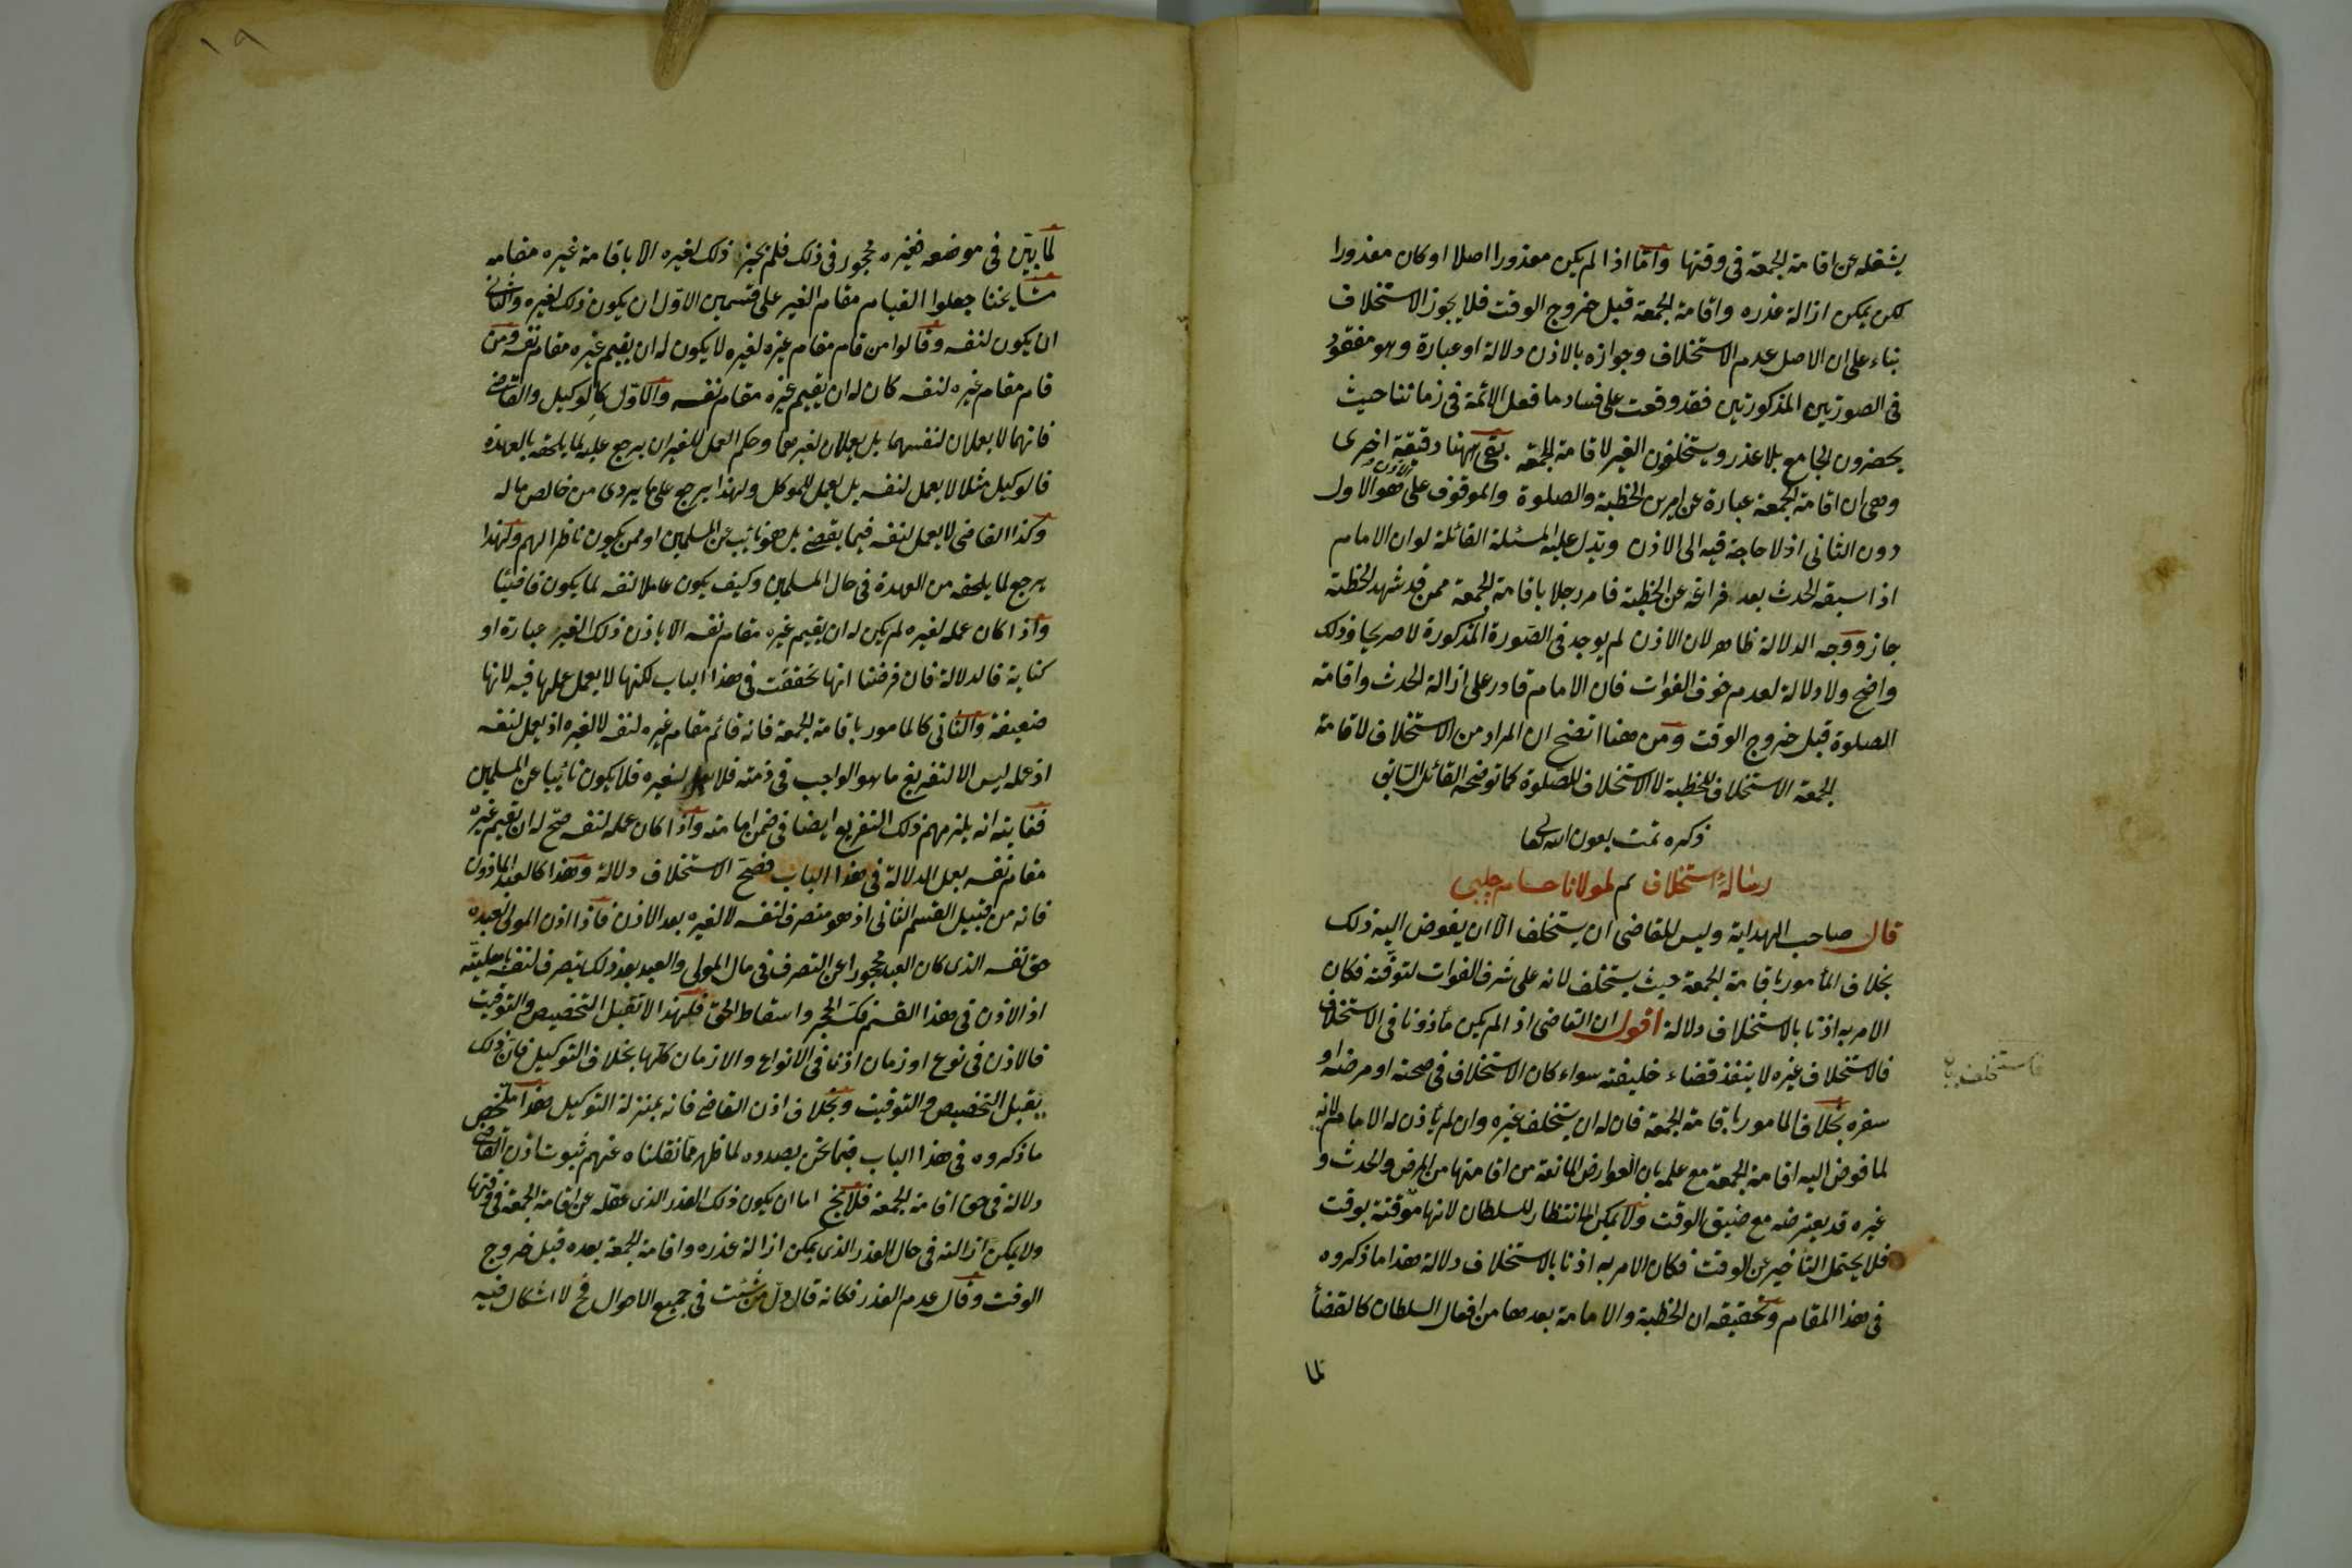 يشغله عن اقامة الجمعة فى وقتها واما اذا لم يكن معذورا اصلا او كان معذورا
لكن يمكن ازالة عذره واقامة الجمعة قبل خروج الوقت فلا يجوز الاستخلاف
بناء على ان الاصل عدم الاستخلاف وجوازه بالاذن دلالة او عبارة وهو مفقود
فى الصورتين المذكورتين فقد وقعت على فساد ما فعل الائمة فى زماننا حيث
يحضرون الجامع بلا عذر ويستخلفون الغير لاقامة الجمعة بقى ههنا دقيقة اخرى
وهى ان اقامة الجمعة عبارة عن امرين الخطبة والصلوة والموقوف على الاذن هو الاول
دون الثانى اذ لا حاجة فيه الى الاذن ويدل عليه المسئلة القائلة لو ان الامام
اذا سبقه الحدث بعد فراغه عن الخطبة فامر رجلا باقامة الجمعة ممن قد شهد الخطبة
جاز ووجه الدلالة ظاهر لان الاذن لم يوجد فى الصورة المذكورة لا صريحا وذلك
واضح ولا دلالة لعدم خوف الفوات فان الامام قادر على ازالة الحدث واقامة
الصلوة قبل خروج الوقت ومن هنا اتضح ان المراد من الاستخلاف لاقامة
الجمعة الاستخلاف للخطبة لا الاستخلاف للصلوة كما توضحه القائل السابق
ذكره تمت بعون الله تعالى
رسالة استخلاف لمولانا حسام چلبى
قال صاحب الهداية وليس للقاضى ان يستخلف الا ان يفوض اليه ذلك
بخلاف المأمور باقامة الجمعة حيث يستخلف لانه على شرف الفوات لتوقته فكان
الامر به اذنا بالاستخلاف دلالة اقول ان القاضى اذا لم يكن مأذونا فى الاستخلاف
فالاستخلاف غيره لا ينفذ قضاء خليفته سواء كان الاستخلاف فى صحته او مرضه او
سفره بخلاف المامور باقامة الجمعة فان له ان يستخلف غيره وان لم يأذن له الامام لانه
لما فوض اليه اقامة الجمعة مع علمه بان العوارض المانعة من اقامتها من المرض والحدث و
غيره قد يعترضه مع ضيق الوقت ولا يمكن الانتظار للسلطان لانها موقتة بوقت
فلا يحتمل التأخير عن الوقت فكان الامر به اذنا بالاستخلاف دلالة هذا ما ذكروه
فى هذا المقام وتحقيقه ان الخطبة والامامة بعدها من افعال السلطان كالقضأ
لما
١٩
لما بين فى موضعه فغيره محجور فى ذلك فلم يجز ذلك لغيره الا باقامة غيره مقامه
مشايخنا جعلوا القيام مقام الغير على قسمين الاول ان يكون ذلك لغيره والثانى
ان يكون لنفسه وقالوا من قام مقام غيره لغيره لا يكون له ان يقيم غيره مقام نفسه ومن
قام مقام غيره لنفسه كان له ان يقيم غيره مقام نفسه والاول كالوكيل والقاضى
فانهما لا يعملان لنفسهما بل يعملان لغيرهما وحكم العمل للغير ان يرجع عليه لما يلحقه بالعهدة
فالوكيل مثلا لا يعمل لنفسه بل يعمل للموكل ولهذا يرجع على ما يردى من خالص ماله
وكذا القاضى لا يعمل لنفسه فيما يقضى بل هو نائب عن المسلمين او ممن يكون ناظرا لهم ولهذا
يرجع لما يلحقه من العهدة فى حال المسلمين وكيف يكون عاملا لنفسه لما يكون قاضيا
واذا كان عمله لغيره لم يكن له ان يقيم غيره مقام نفسه الا باذن ذلك الغير عبارة او
كناية فالدلالة فان فرضنا انها تحققت فى هذا الباب لكنها لا يعمل عملها فيه لانها
ضعيفة والثانى كالمامور باقامة الجمعة فانه قائم مقام غيره لنفسه لا لغيره اذ يعمل لنفسه
اذ عمله ليس الا لتفريغ ما هو الواجب فى ذمته فلا لغيره فلا يكون نائبا عن المسلمين
فغايته انه يلزمهم ذلك التفريع ايضا فى ضمن امامته واذا كان عمله لنفسه صح له ان يقيم غيره
مقام نفسه بعمل الدلالة فى هذا الباب فصح الاستخلاف دلالة وهذا كالعبد المأذون
فانه من قبيل القسم الثانى اذ هو متصرف لنفسه لا لغيره بعد الاذن فاذا اذن المولى لعبده
حق نفسه الذى كان العبد محجورا عن التصرف فى مال المولى والعبد بعد ذلك يتصرف لنفسه باهليته
اذ الاذن فى هذا القسم فك الحجر واسقاط الحق فلهذا لا تقبل التخصيص والتوقيت
فالاذن فى نوع او زمان اذن فى الانواع والازمان كلها بخلاف التوكيل فان ذلك
يقبل التخصيص والتوقيت وبخلاف اذن القاضى فانه بمنزلة التوكيل هذا ملخص
ما ذكروه فى هذا الباب فيما نحن بصدده لما ظهر مما نقلناه عنهم ثبوت اذن القاضى
دلالة فى حق اقامة الجمعة فلا يخ اما ان يكون ذلك العذر الذى عقله عن اقامة الجمعة فى وقتها
ولا يمكن ازالته فى حال العذر الذى يمكن ازالة عذره واقامة الجمعة بعده قبل خروج
الوقت وقال عدم العذر فكانه قال ول من شئت فى جميع الاحوال فح لا اشكال فيه